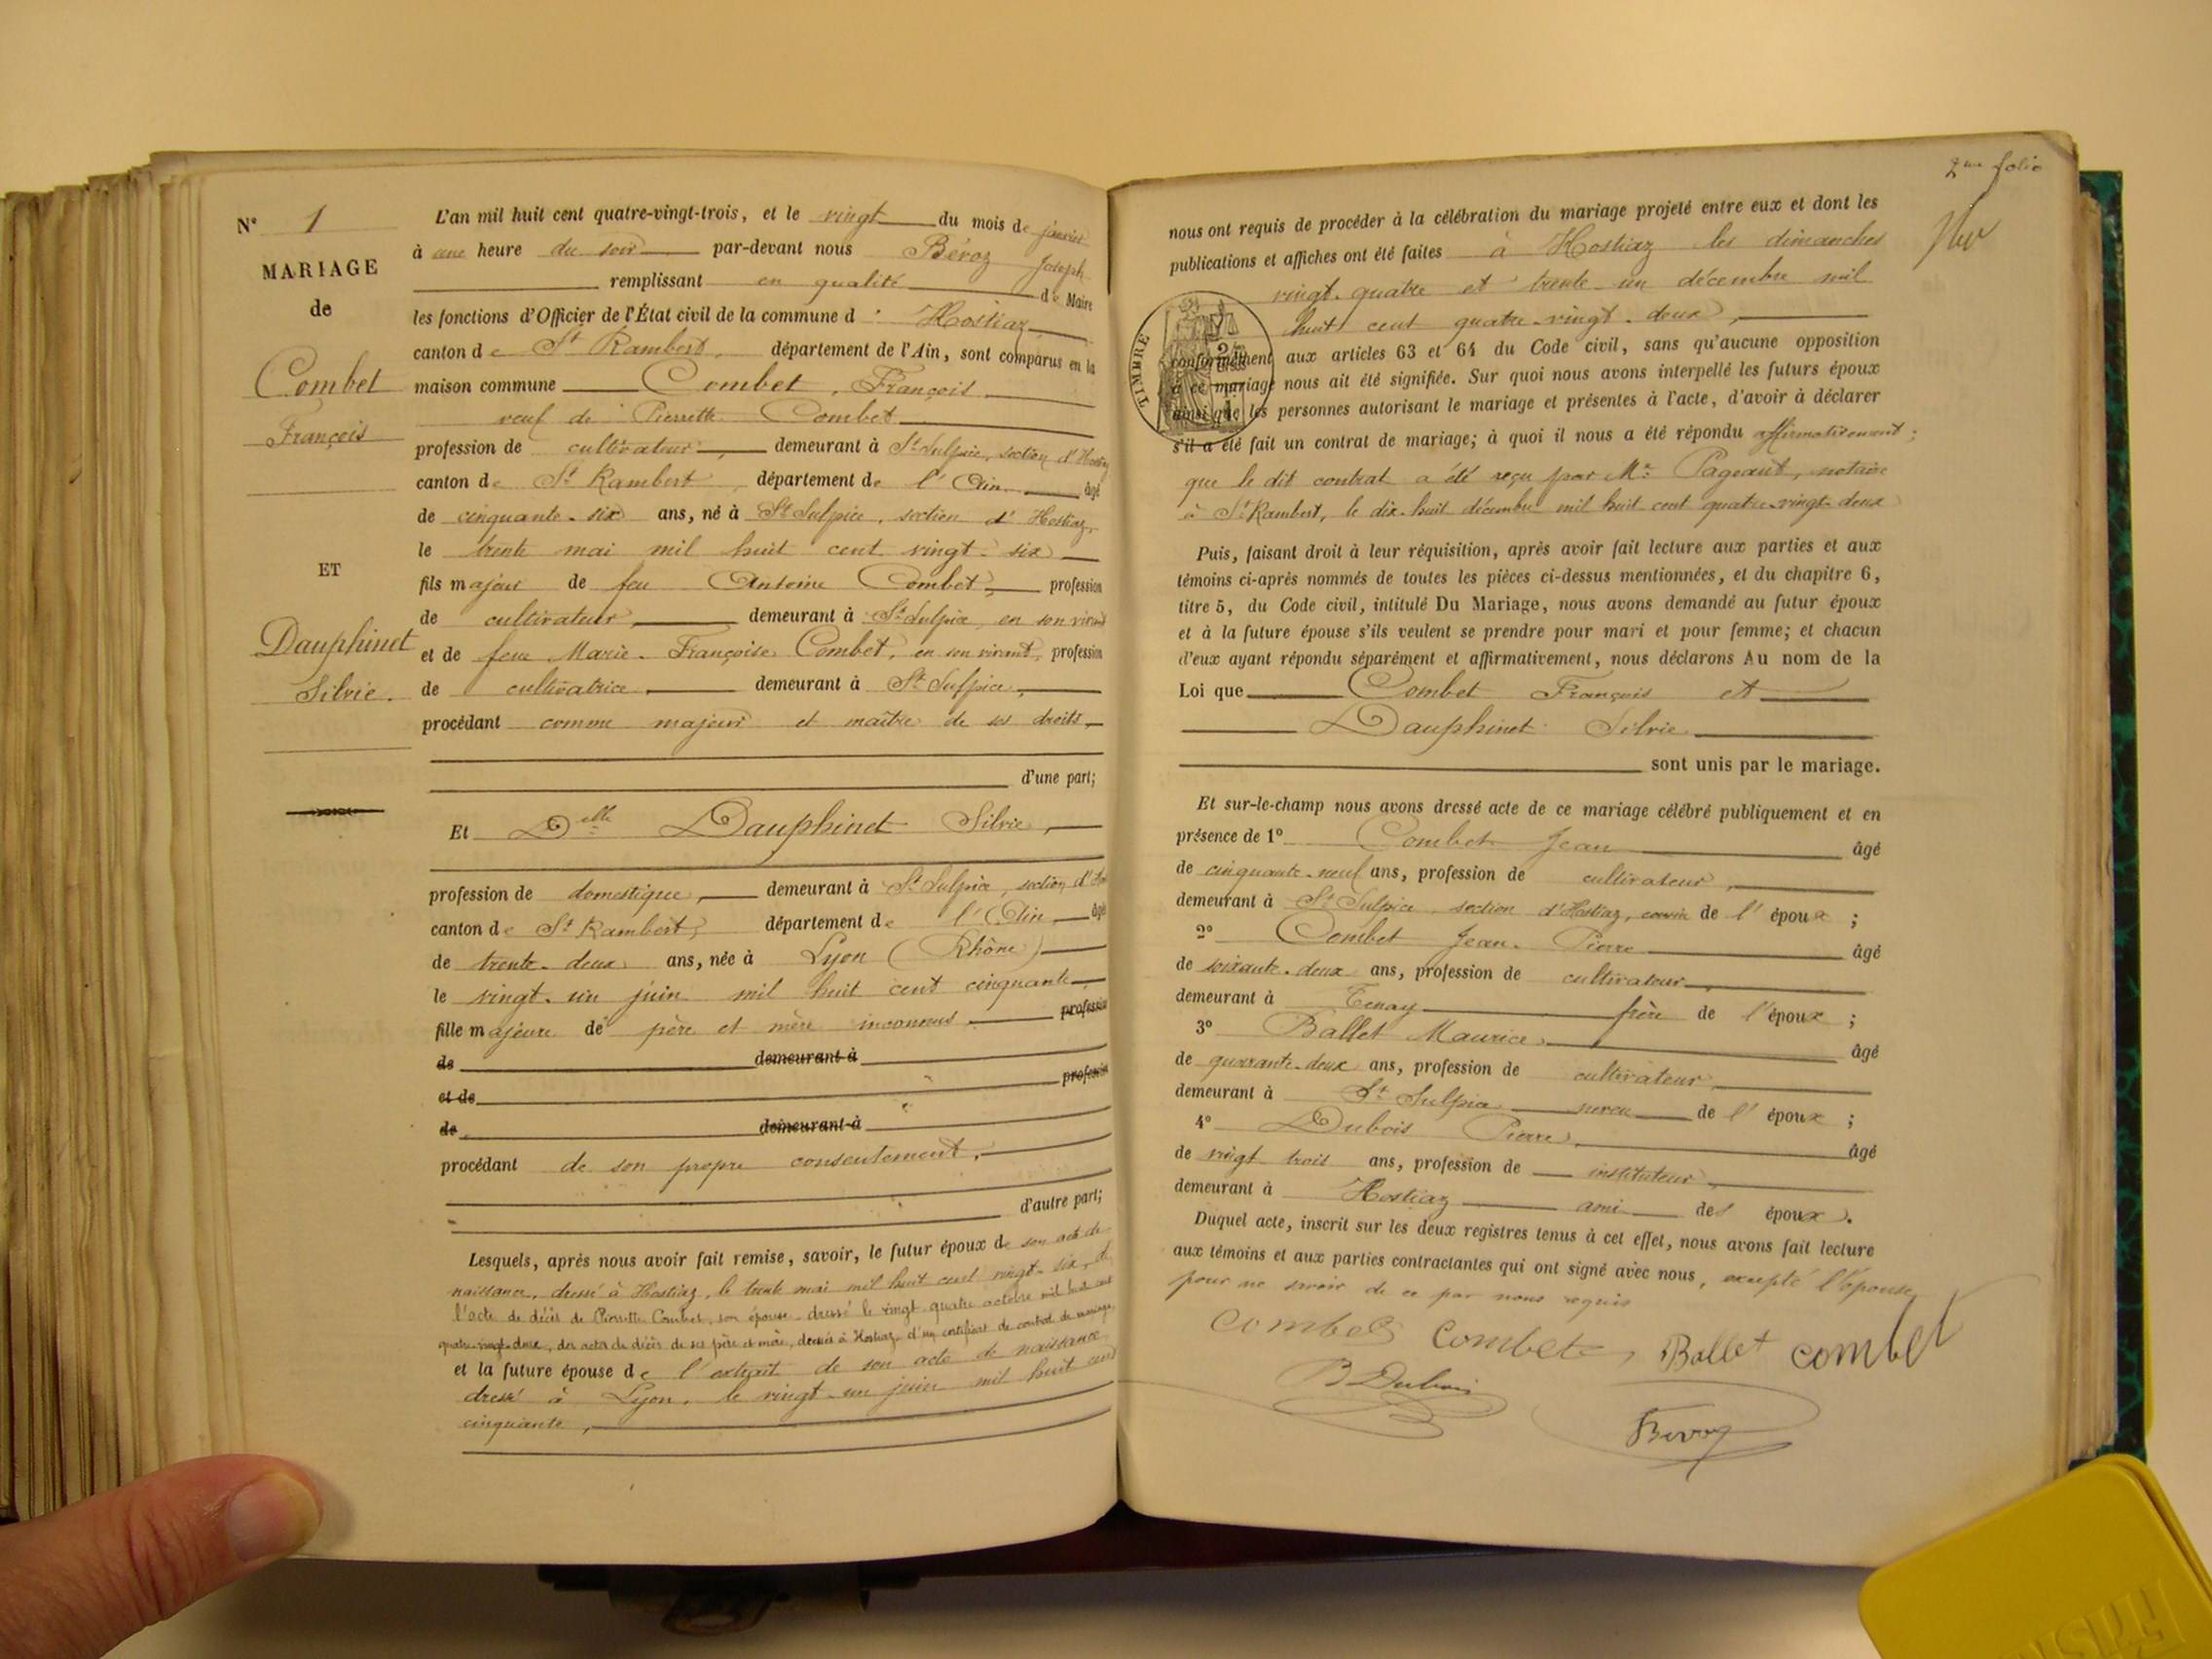 N° 1
MARIAGE
de
Combet
François
ET
Dauphinet
Silvie.
L'an mil huit cent quatre-vingt-trois, et le vingt du mois de janvier
à une heure du soir par-devant nous Béroz Joseph
remplissant en qualité de Maire
les fonctions d'Officier de l'État civil de la commune d' Hostiaz
canton de St Rambert, département de l'Ain, sont comparus en la
maison commune Combet, François
veuf de Pierrette Combet
profession de cultivateur, demeurant à St Sulpice, section d'Hostiaz
canton de St Rambert, département de l'Ain âgé
de cinquante-six ans, né à St Sulpice, section d'Hostiaz,
le trente mai mil huit cent vingt-six
fils majeur de feu Antoine Combet, profession
de cultivateur, demeurant à St Sulpice, en son vivant
et de feue Marie-Françoise Combet, en son vivant, profession
de cultivatrice demeurant à St Sulpice,
procédant comme majeur et maître de ses droits
d'une part;
Et Delle Dauphinet Silvie,
profession de domestique, demeurant à St Sulpice, section d'
canton de St Rambert, département de l'Ain, âgé
de trente-deux ans, née à Lyon (Rhône)
le vingt-un juin mil huit cent cinquante
fille majeure de père et mère inconnus profession
de demeurant à
et de profession
de demeurant à
procédant de son propre consentement,
d'autre part;
Lesquels, après nous avoir fait remise, savoir, le futur époux de son acte de
naissance, dressé à Hostiaz, le trente mai mil huit cent vingt-six, de
l'acte de décès de Pierrette Combet, son épouse dressé le vingt-quatre octobre mil huit cent
quatre-vingt-deux, des actes de décès de ses père et mère, dressés à Hostiaz d'un certificat de contrat de mariage,
et la future épouse de l'extrait de son acte de naissance
dressé à Lyon, le vingt-un juin mil huit cent
cinquante,
2me folio
nous ont requis de procéder à la célébration du mariage projeté entre eux et dont les
publications et affiches ont été faites à Hostiaz les dimanches
vingt-quatre et trente-un décembre mil
huit cent quatre-vingt-deux,
TIMBRE
conformément aux articles 63 et 64 du Code civil, sans qu'aucune opposition
à ce mariage nous ait été signifiée. Sur quoi nous avons interpellé les futurs époux
ainsi que les personnes autorisant le mariage et présentes à l'acte, d'avoir à déclarer
s'il a été fait un contrat de mariage; à quoi il nous a été répondu affirmativement;
que le dit contrat a été reçu par Mr Pageaut, notaire
à St Rambert, le dix-huit décembre mil huit cent quatre-vingt-deux
Puis, faisant droit à leur réquisition, après avoir fait lecture aux parties et aux
témoins ci-après nommés de toutes les pièces ci-dessus mentionnées, et du chapitre 6,
titre 5, du Code civil, intitulé Du Mariage, nous avons demandé au futur époux
et à la future épouse s'ils veulent se prendre pour mari et pour femme; et chacun
d'eux ayant répondu séparément et affirmativement, nous déclarons Au nom de la
Loi que Combet François et
Dauphinet Silvie
sont unis par le mariage.
Et sur-le-champ nous avons dressé acte de ce mariage célébré publiquement et en
présence de 1° Combet Jean âgé
de cinquante-neuf ans, profession de cultivateur,
demeurant à St Sulpice, section d'Hostiaz, cousin de l'époux;
2° Combet Jean-Pierre âgé
de soixante-deux ans, profession de cultivateur
demeurant à Tenay frère de l'époux;
3° Ballet Maurice âgé
de quarante-deux ans, profession de cultivateur
demeurant à St Sulpice neveu de l'époux;
4° Dubois Pierre, âgé
de vingt trois ans, profession de instituteur
demeurant à Hostiaz ami des époux.
Duquel acte, inscrit sur les deux registres tenus à cet effet, nous avons fait lecture
aux témoins et aux parties contractantes qui ont signé avec nous, excepté l'épouse
pour ne savoir de ce par nous requis
Combet Combet Ballet combet
P Dubois
Béroz